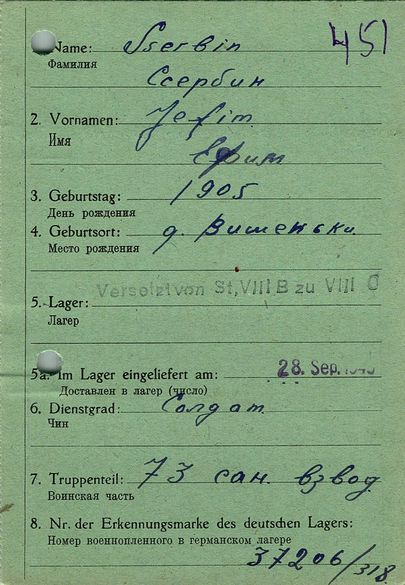 Name: Sserbin 451
Фамилия
Ссербин
2. Vornamen: Jefim
Имя
Ефим
3. Geburtstag: 1905
День рождения
4. Geburtsort: д. Вишеньки
Место рождения
Versetzt von St, VIII B zu VIII C
5. Lager:
Лагерь
28. Sep. 1943
5a. Im Lager eingeliefert am:
Доставлен в лагер (число)
6. Dienstgrad: Солдат
Чин
7. Truppenteil: 73 сан. взвод
Воинская часть
8. Nr. der Erkennungsmarke des deutschen Lagers:
Номер военнопленного в германском лагере
37206/318